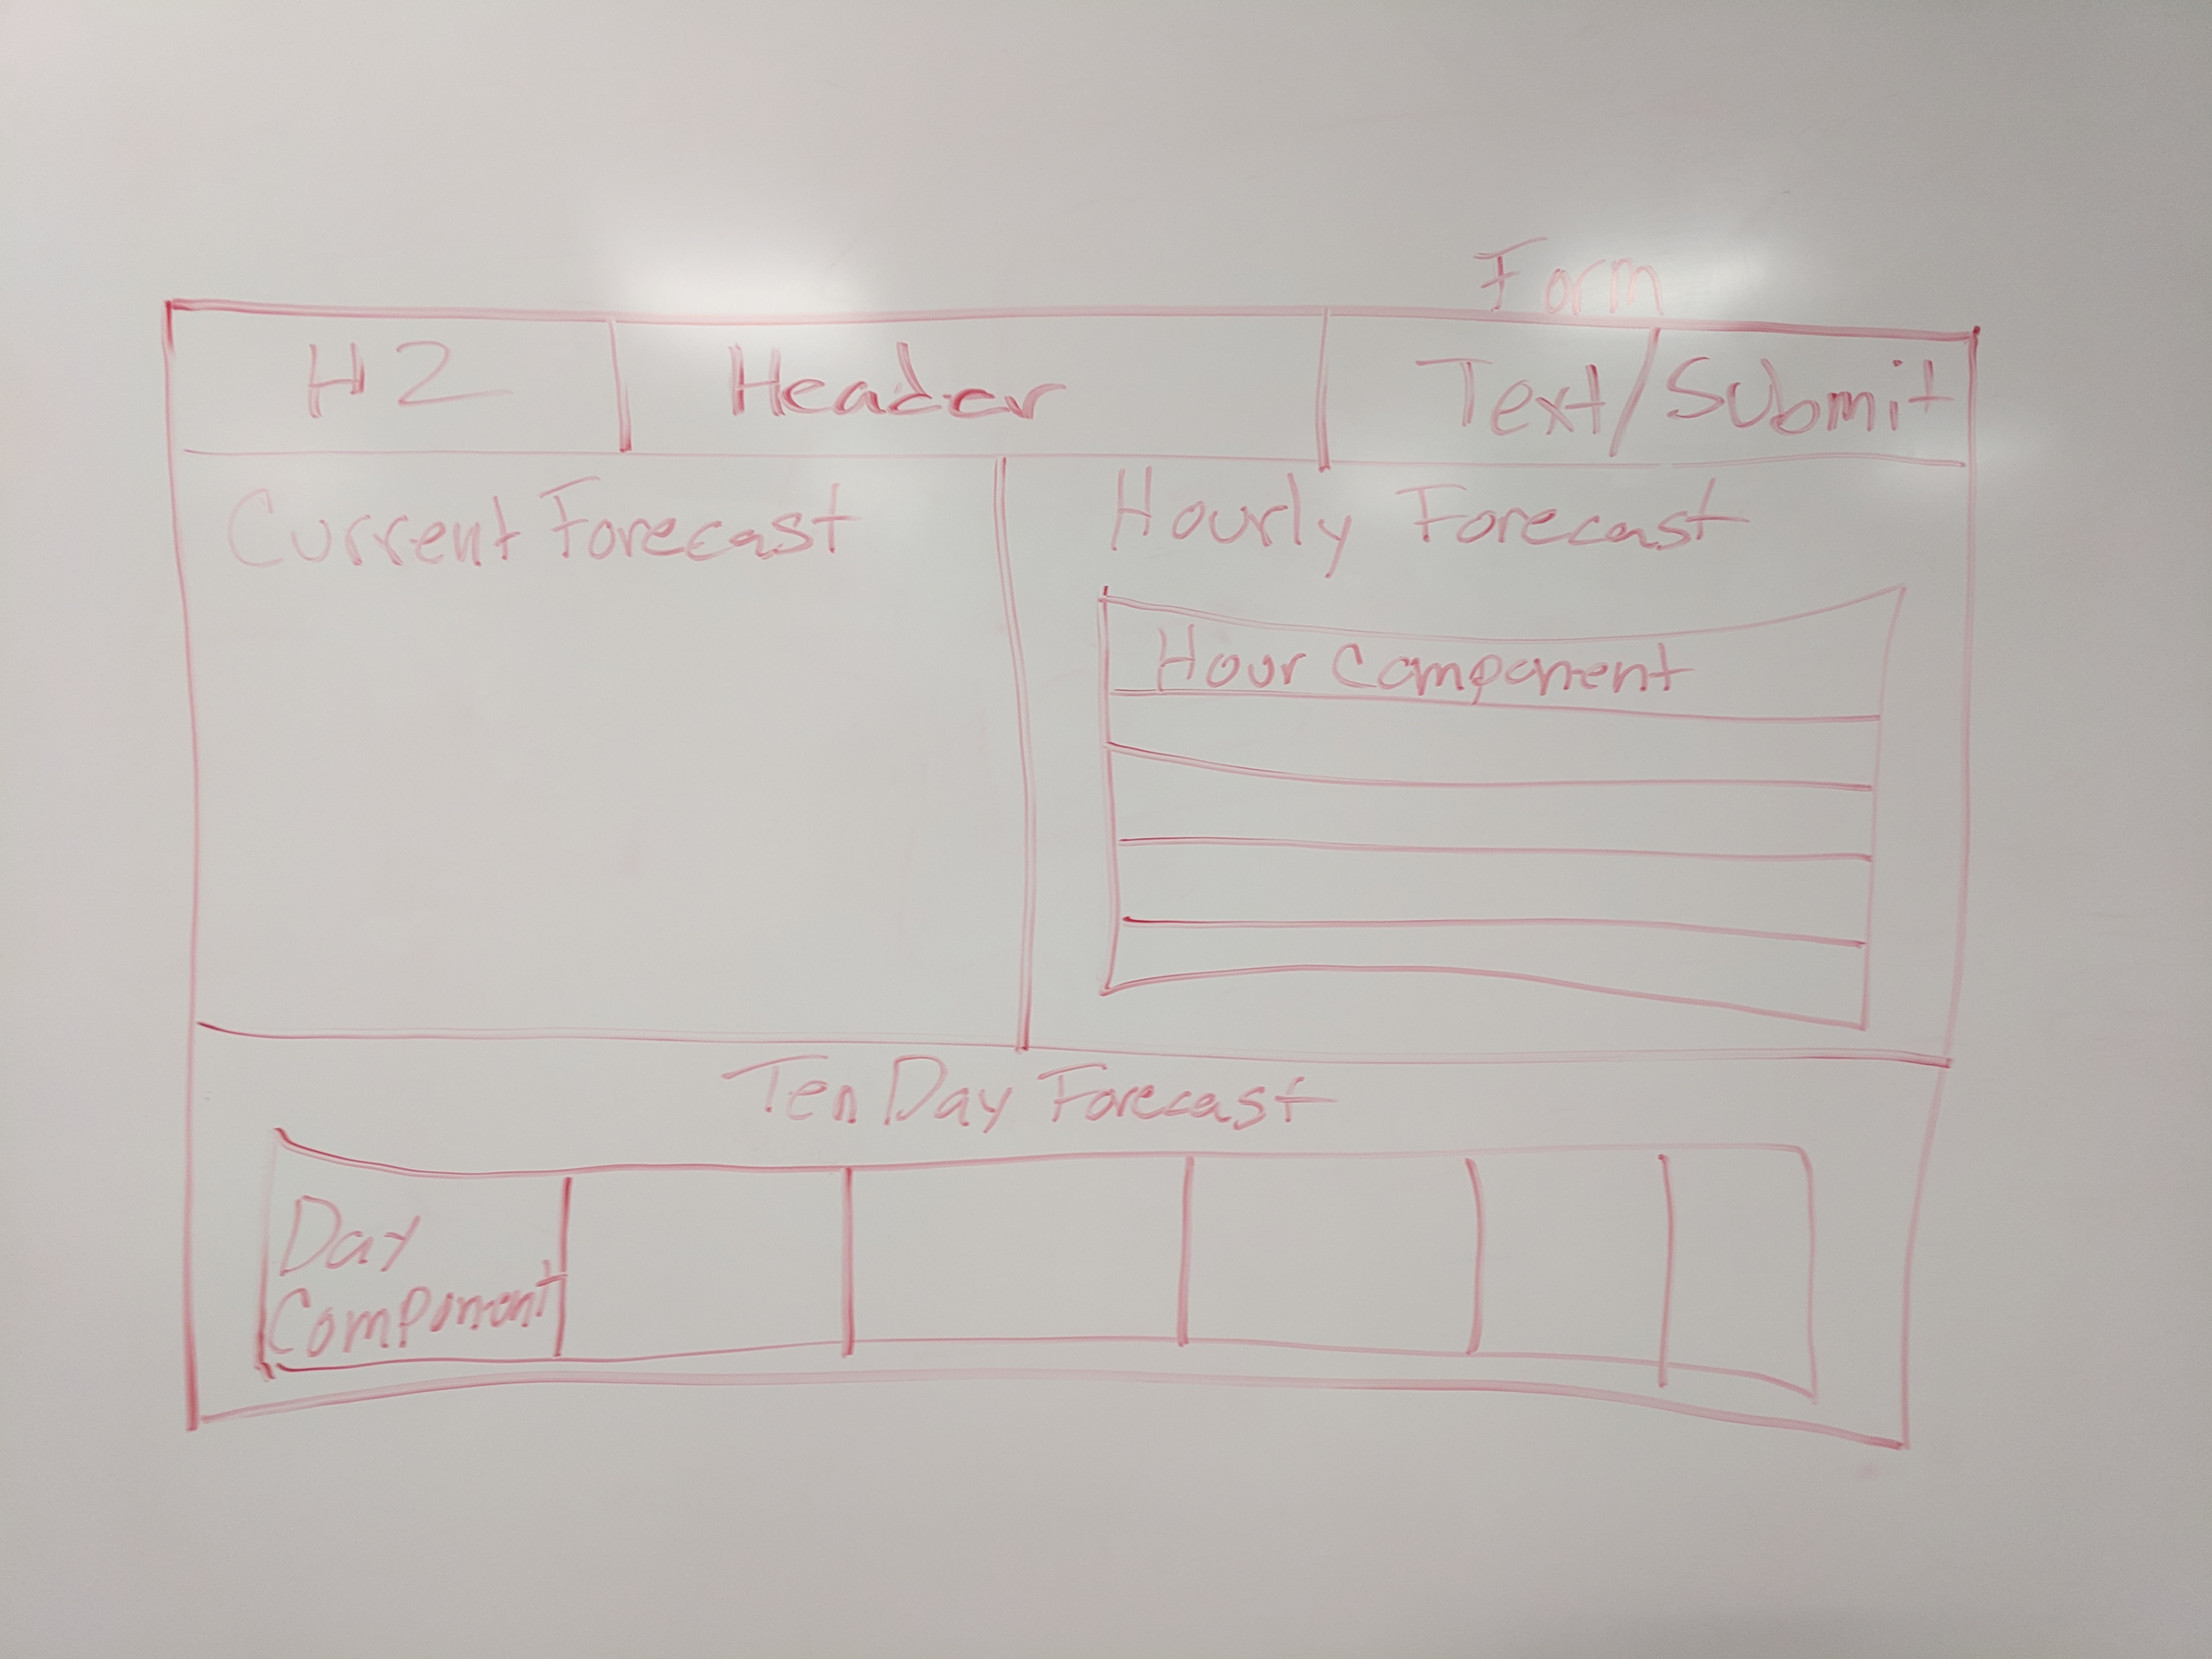 Form
H2 Header Text/Submit
Current Forecast Hourly Forecast
Hour Component
Ten Day Forecast
Day
Component